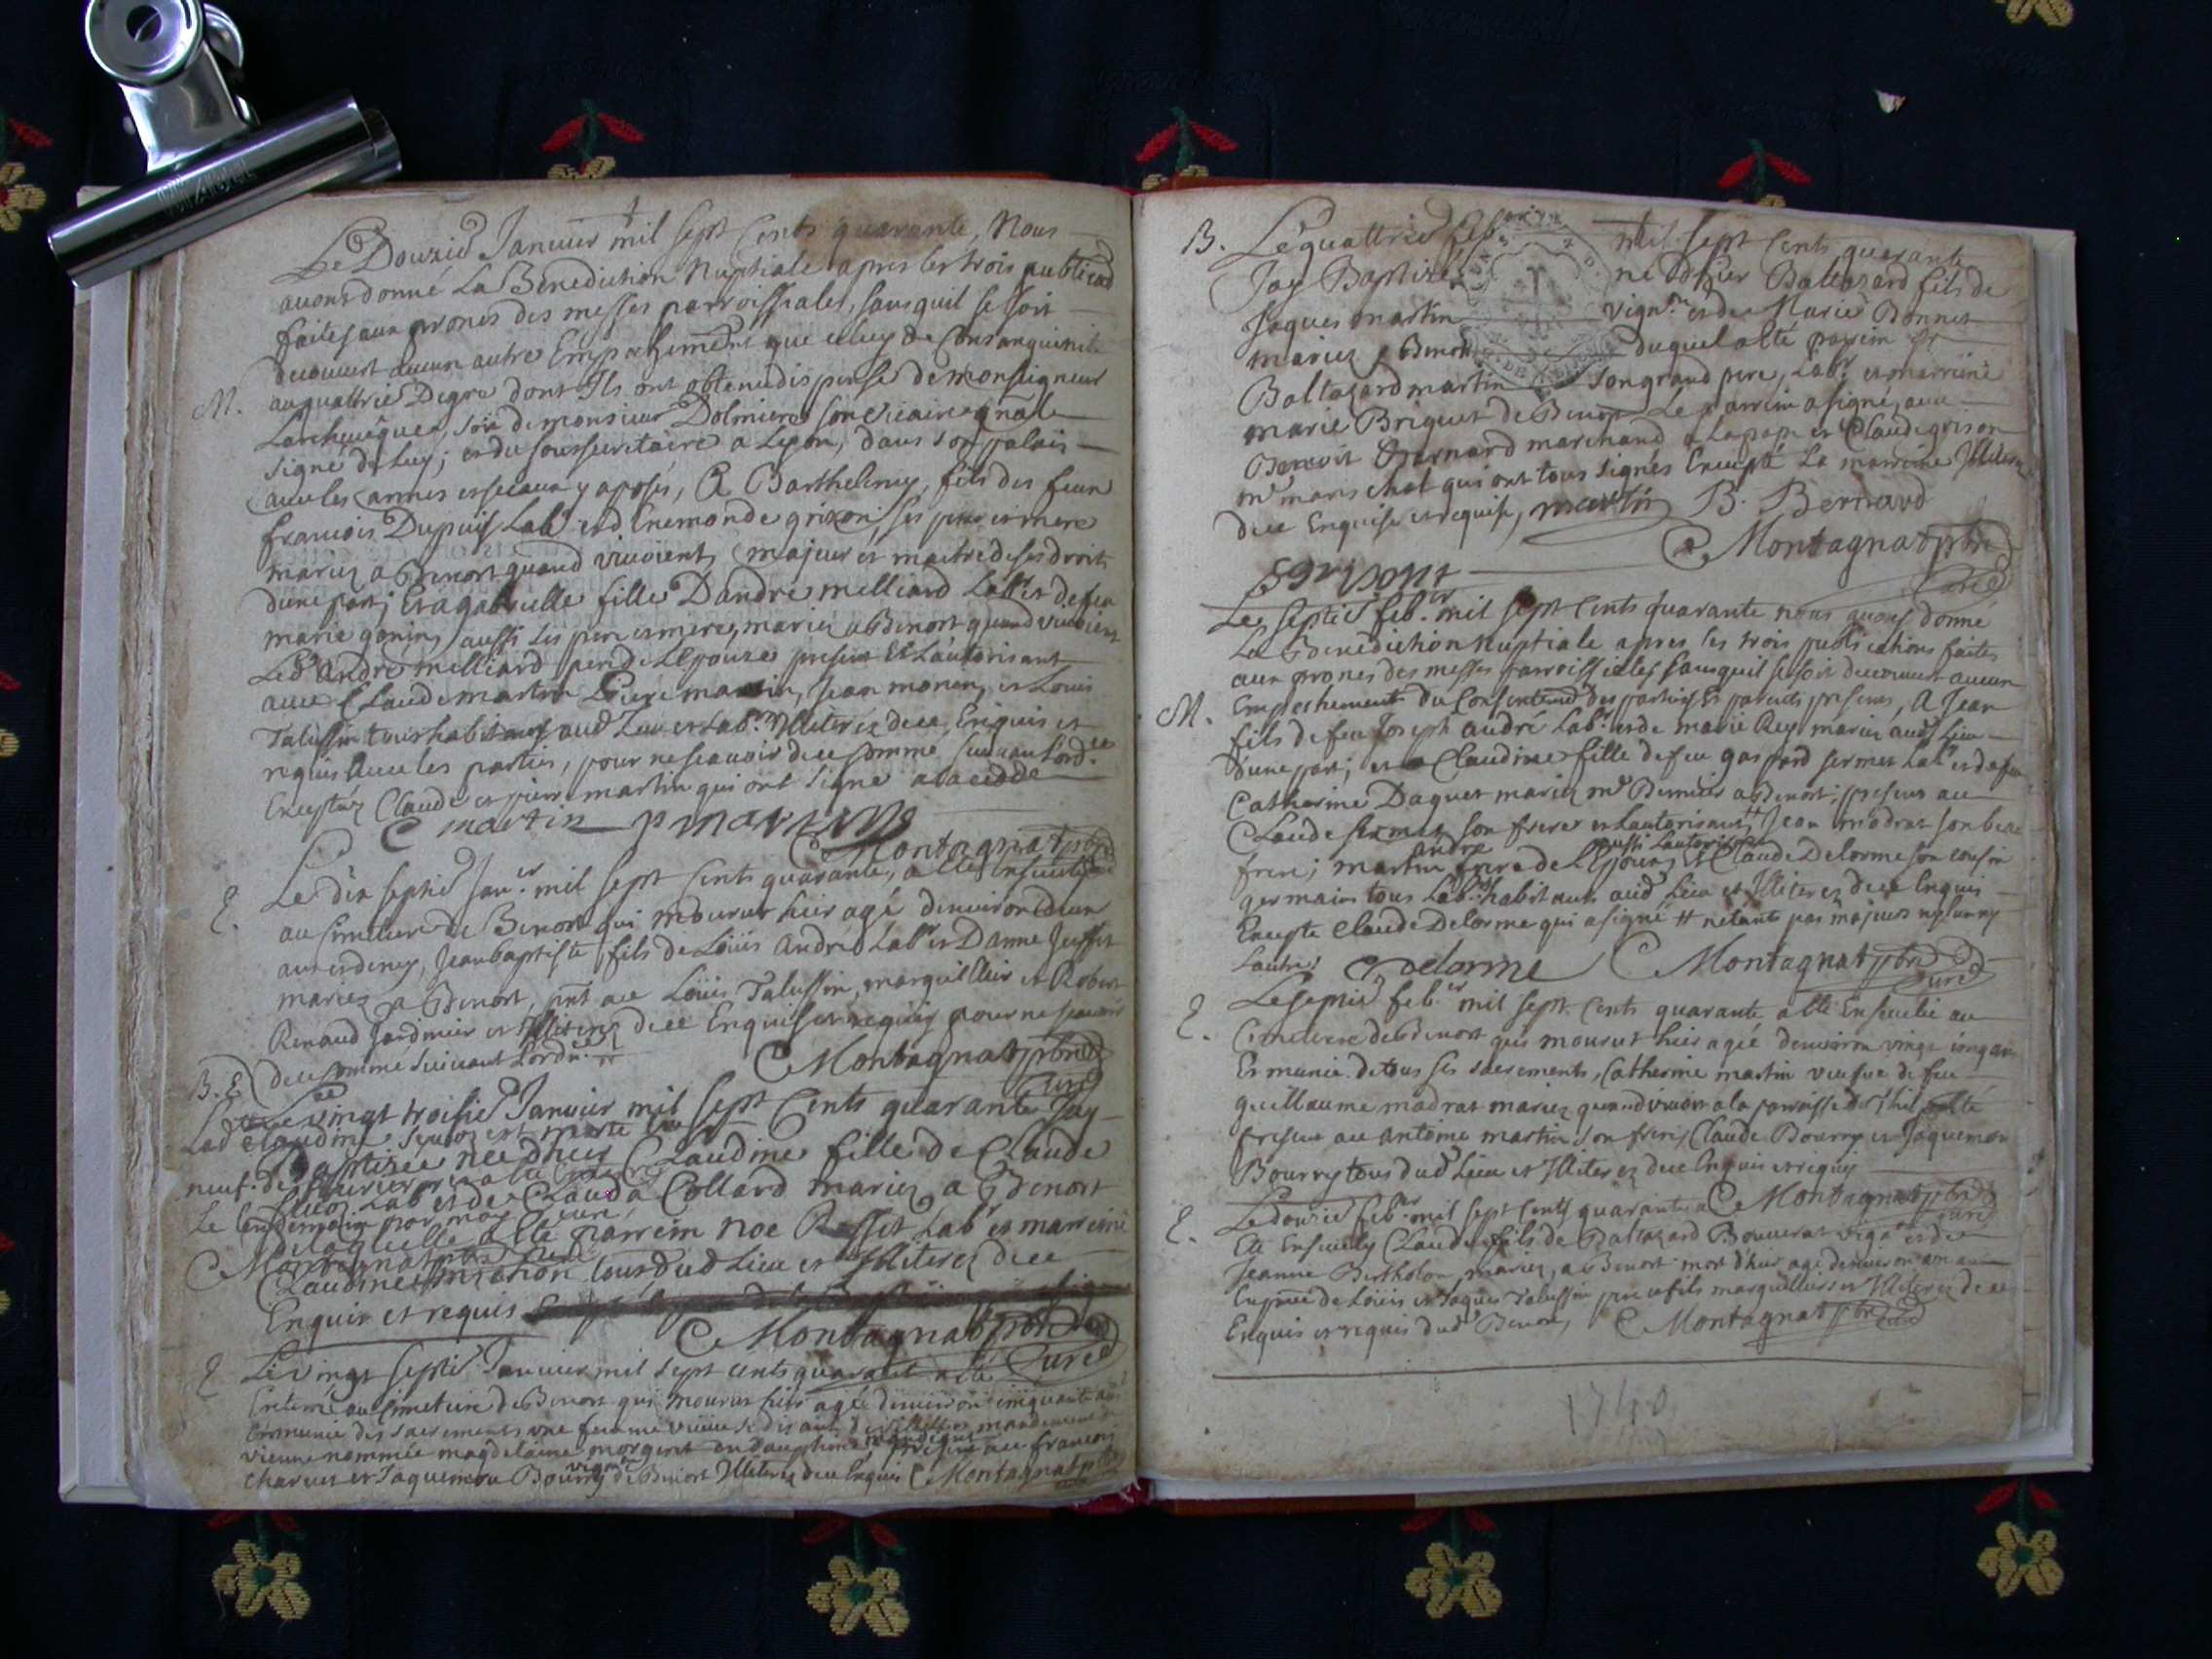 Le Douzie Janvier mil sept Cents quarante, Nous
avons donné La Bénédiction Nuptiale apres les trois publicaõ
faites aux prones des messes parroissiales, sans quil se soit
decouvert aucun autre Empechement que celuy de Consanguinité
M. au quattrie Degre dont Ils ont obtenu dispense de monseigneur
Larcheuêque, de monsieur son Vicaire gñal
signé de Luy; et du soussecretaire a Lyon, dans son palais
auec les armes et sceaux y aposés, A Barthelemy, fils des feux
francois Dupuis Labr et d Enemonde grizon ses pere et mere
mariez a Benost quand vivoient, majeur et maitre de ses droits
dune part; Et a gabrielle fille D'andré milliard Labr et de feu
marie gonin aussi ses pere et mere, mariez a Benost quand vivoient
Led andré milliard pere de Lepouze present Et Lautorisant
auec Claude martin Pierre martin, Jean monin, et Louis
Talussin tous habitans aud Lieu et Labrs Illiterez dece Enquis et
requis Auec les parties, pour ne scavoir dece sommé suivant Lordce
Exceptéz Claude et pierre martin qui ont signé
C martin p martin
Montagnat pbre
E. Le dix septie Janer mil sept Cents quarante, a été Ensevely
au Cimetiere de Benost qui mourut hier agé denviron deux
ans et demy, Jean baptiste fils de Loüis andré Labr et Danne
mariez a Benost, pnt auec Loüis Talussin, marguillier et Robert
Renaud Jardinier et Illiterez dece Enquis et requis pour ne scavoir
dece sommé suivant Lordce
Montagnat pbre
Curé
B. E Le vingt troisie Janvier mil sept Cents quarante Jay
Lad Claudine est morte le
Baptizée née d'hier Claudine fille de Claude
neuf de
Labr et de Clauda Collard mariez a Benost
Le lendemain par moy curé
de laquelle a été parrein noé Rosset Labr et marreine
Montagnat pbre curé
Claudine tous dud Lieu et Illiterez dece
Enquis et requis
Montagnat pbre
Curé
E Le vingt septie Janvier mil sept cents quarante a été
Enterré au Cimetiere de Benost qui mourut hier agée denviron cinquante ans
Et munie des sacrements une femme veuve se disant de mandement de
vienne nommée magdelaine en dauphiné mandiante present auec francois
Charvet et Jaquemou Bourry vignr de Benost Illiterez dece Enquis Montagnat pbre
B. Le quattrie feb mil sept Cents quarante
Jay Baptizé né d'hier Baltazard fils de
Jaques martin vignon et de Marie Bonnet
mariez a Benost duquel a été parrein Sr
Baltazard martin son grand pere, Labr et marreine
marie Briguet de Benost Le parrein a signé, auec
Benoit Bernard marchand a Lapape et Claude grison
me mareschal qui ont tous signés Excepté La marreine Illiterée
dece Enquise et requise, martin B. Bernard
Montagnat pbre
Curé
grisont
Le septie feber mil sept Cents quarante nous avons donné
La Bénédiction Nuptiale apres les trois publications faites
aux prones des messes parroissiales sans quil se soit decouvert aucun
M. Empechement du Consentemt des parties Et parents presens, A Jean
fils de feu Joseph andré Labr et de marie Rey mariez aud Lieu
d'une part; et a Claudine fille de feu gaspard sermet Labr et de feu
Catherine Daguet mariez Benost; present auec
Claude sermet son frere et Lautorisant, # Jean madras son beau
frere; martin andré frere de Lepoux aussi Lautorisant et Claude Delorme son cousin
germain tous Labrs habitants aud Lieu et Illiterez dece Enquis
Excepte Claude Delorme qui a signé # netants pas majeurs ny lun ny
Lautre
C Delorme Montagnat pbre
Curé
E. Le septie feber mil sept Cents quarante a été Ensevelie au
Cimetiere de Benost qui mourut hier agée denviron vingt cinq ans
Et munie de tous ses sacrements, Catherine martin veufve de feu
guillaume madras mariez quand vivoit a la parroisse de
present auec antoine martin son frere; Claude Bourry et Jaquemou
Bourry tous dud Lieu et Illiterez dece Enquis et requis
Montagnat pbre
Curé
E. Le douzie feber mil sept Cents quarante a
Eté Ensevely Claude fils de Baltazard Bouverat vignon et de
Jeanne Bertholon mariez, a Benost mort d'hier agé denviron un an
En pnce de Loüis et Jaques Talussin pere et fils marguilliers et Illiterez de ce
Enquis et requis dud Benost, Montagnat pbre
1740